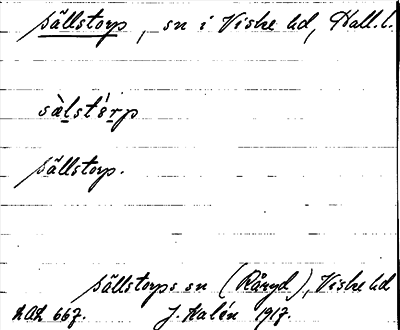 Sällstorp, sn i Viske hd, Hall. l.
sä̀lstórp
Sällstorp.
Sällstorps sn (Råryd), Viske hd
667. J. Kalén 1917.